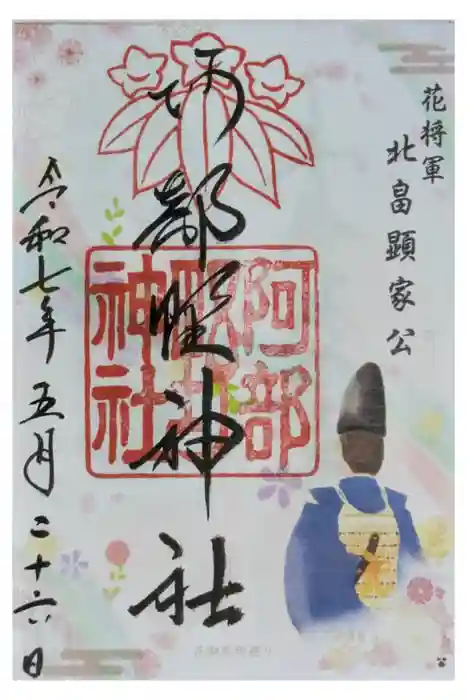 花将軍
北畠顕家公
阿部野神社
阿部野神社
令和七年五月二十六日
花御朱印巡り